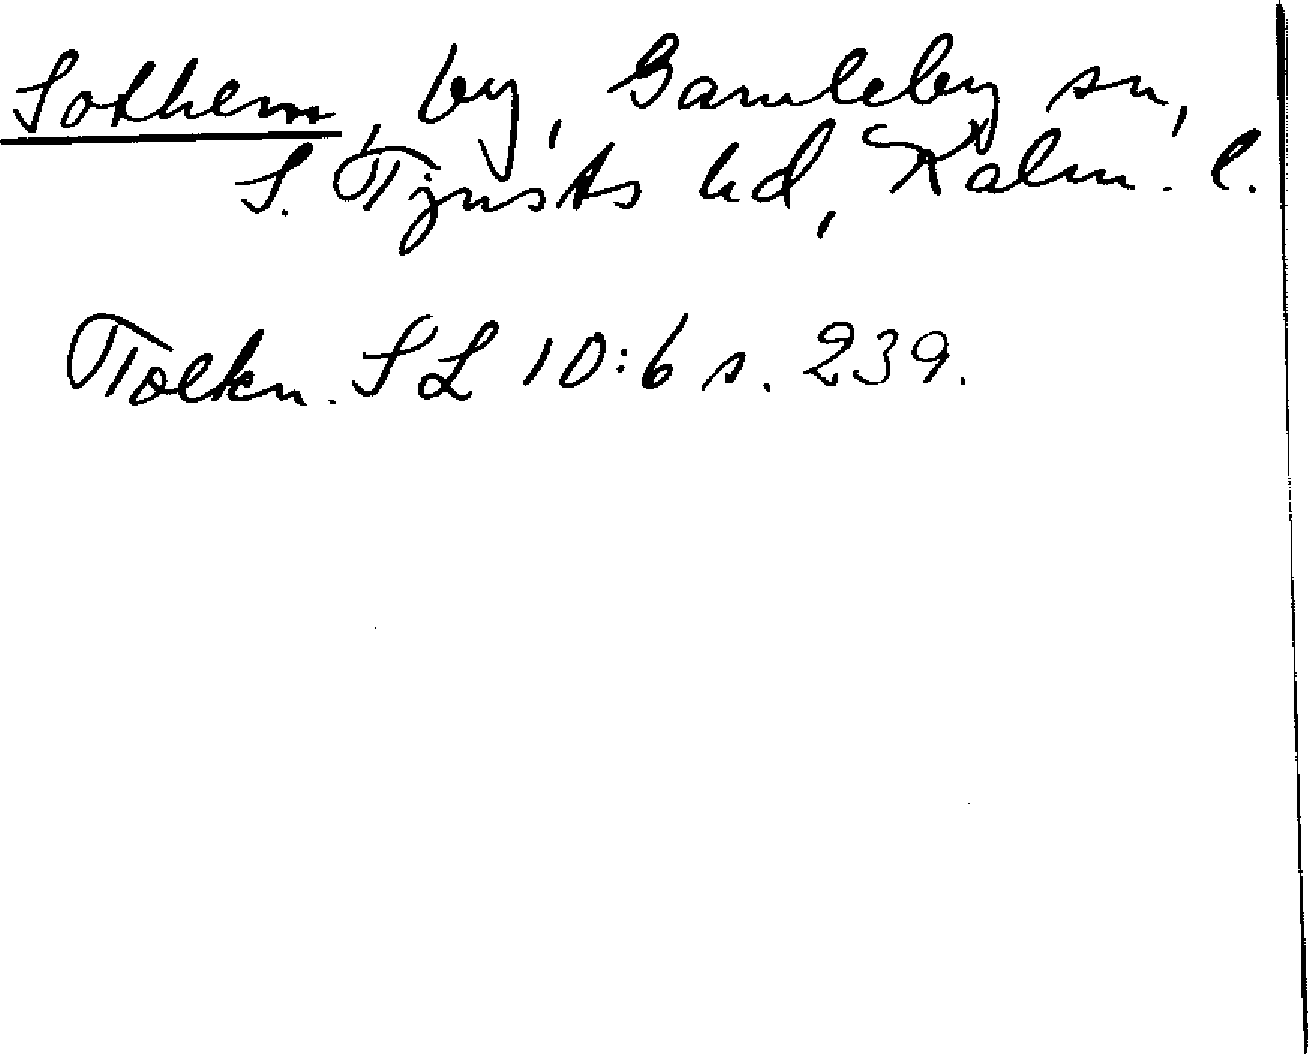 Sothem, by, Gamleby sn,
S. Tjusts hd, Kalm. l.
Tolkn. SL 10:6 s. 239.